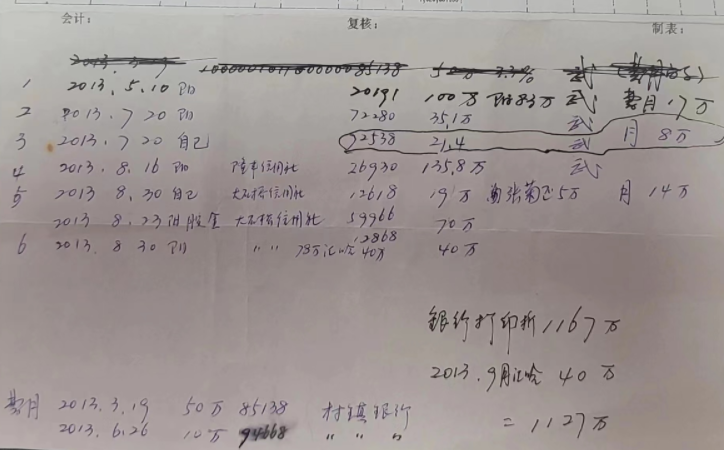 会计： 复核： 制表：
2013. 10000001011000000085138 50万 7.3% 武
1 2013.5.10 阳 20191 100万 阳83万 武 17万
2 2013.7 20 阳 72280 35.1万
3 2013.7 20 自己 72538 21.4 武 月 8万
4 2013.8.16 阳 信用社 26930 135.8万 武
5 2013 8.30 自己 大石桥信用社 12618 19万 张菊 5万 月 14万
2013 8.23 阳股金 大石桥信用社 59966 70万
6 2013.8 30 阳 〃 〃 78万汇哈40万 12868 40万
银行打印折1167万
2013.9月汇哈 40万
月 2013.3.19 50万 85138 村镇银行
2013.6.26 10万 94668 〃 〃 〃
=1127万